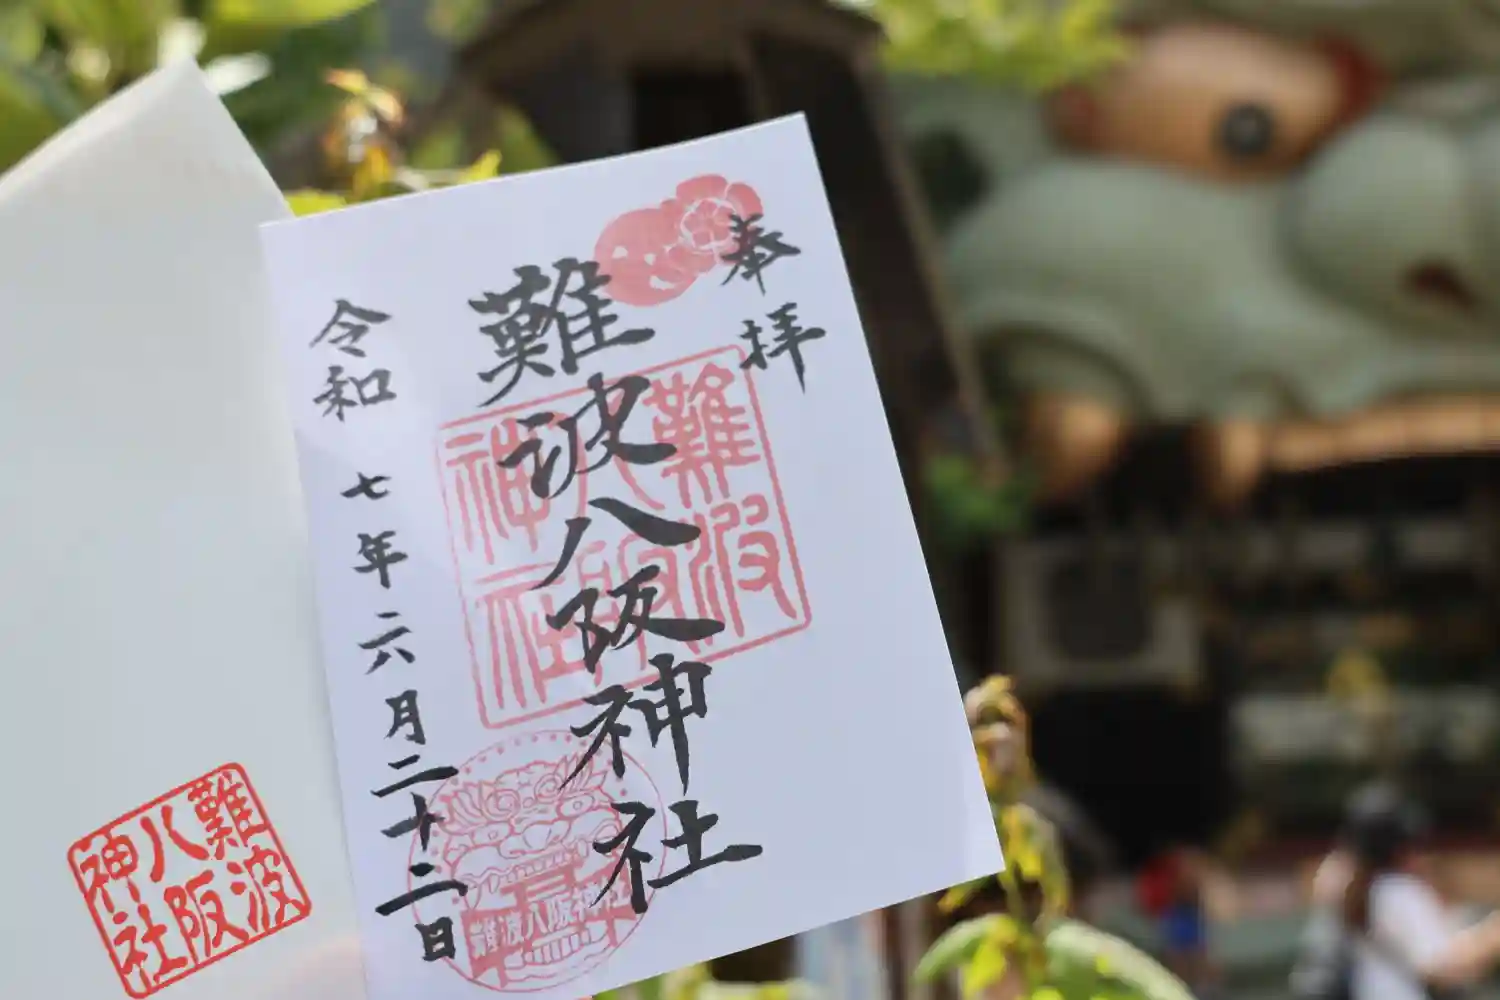 奉拝
難波八阪神社
令和七年六月二十二日
難波八阪神社
難波八阪神社
難波八阪神社